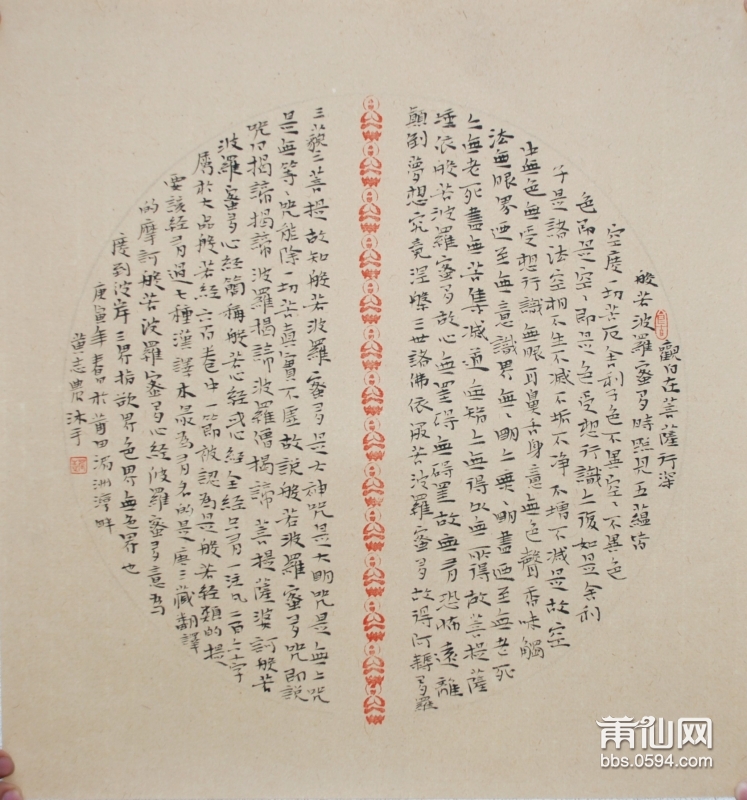 觀自在菩薩行深
般若波羅蜜多時照見五蘊皆
空度一切苦厄舍利子色不異空、不異色
色即是空、即是色受想行識亦復如是舍利
子是諸法空相不生不滅不垢不净不增不滅是故空
中無色無受想行識無眼耳鼻舌身意無色聲香味觸
法無眼界廼至無意識界無、明亦無、明盡廼至無老死
亦無老死盡無苦集滅道無智亦無得以無所得故菩提薩
埵依般若波羅蜜多故心無罣得無碍罣故無有恐怖遠離
顛倒夢想究竟涅槃三世諸佛依般若波羅蜜多故得阿耨多羅
三藐三菩提故知般若波羅蜜多是大神咒是大明咒是無上咒
是無等、咒能除一切苦真實不虛故説般若波羅蜜多咒即説
咒曰揭諦揭諦波羅揭諦波羅僧揭諦菩提薩婆訶般若
波羅蜜多心經簡稱般若心經或心經全經只有一注凡二百六字
屬於大品般若經六百卷中一節被認為是般若經類的提
要該經有過七種漢譯本最為有名的是唐三藏翻譯
的摩訶般若波羅蜜多心經波羅蜜多意為
度到彼岸三界指欲界色界無色界也
庚寅年春日於莆田滿洲灣畔
黃志農沐手
莆仙网
bbs.0594.com